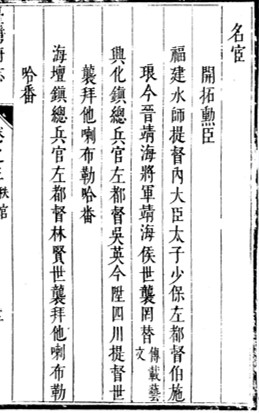 名宦
開拓勲臣
福建水師提督內大臣太子少保左都督伯施
琅今晉靖海將軍靖海侯世襲罔替傳載藝文
興化鎮總兵官左都督吳英今陞四川提督世
襲拜他喇布勒哈畨
海壇鎮總兵官左都督林賢世襲拜他喇布勒
哈畨